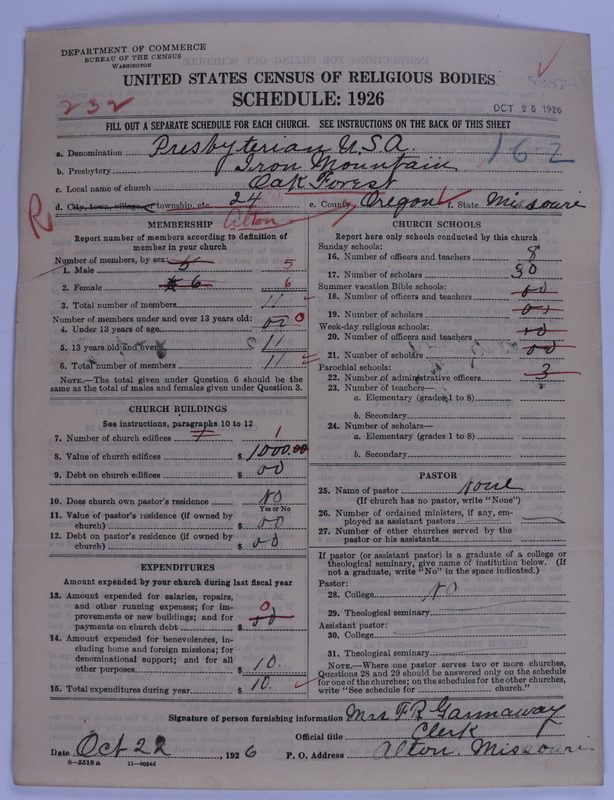 DEPARTMENT OF COMMERCE
BUREAU OF THE CENSUS
WASHINGTON
UNITED STATES CENSUS OF RELIGIOUS BODIES
SCHEDULE: 1926
232
OCT 26 1926
FILL OUT A SEPARATE SCHEDULE FOR EACH CHURCH. SEE INSTRUCTIONS ON THE BACK OF THIS SHEET
a. Denomination Presbyterian U.S.A. 16-2
b. Presbytery Iron Mountain
c. Local name of church Oak Forest
d. City, town, village, or township, etc. 24 e. County Oregon f. State Missouri
R
Alton
MEMBERSHIP
Report number of members according to definition of
member in your church
Number of members, by sex:
1. Male 5 5
2. Female 6 6
3. Total number of members 11
Number of members under and over 13 years old:
4. Under 13 years of age 00 0
5. 13 years old and over 11
6. Total number of members 11
NOTE.—The total given under Question 6 should be the
same as the total of males and females given under Question 3.
CHURCH BUILDINGS
See instructions, paragraphs 10 to 12
7. Number of church edifices 1 1
8. Value of church edifices $ 1000.00
9. Debt on church edifices $ 00
10. Does church own pastor's residence No
Yes or No
11. Value of pastor's residence (if owned by
church) $ 00
12. Debt on pastor's residence (if owned by
church) $ 00
EXPENDITURES
Amount expended by your church during last fiscal year
13. Amount expended for salaries, repairs,
and other running expenses; for im-
provements or new buildings; and for
payments on church debt $ 00 0
14. Amount expended for benevolences, in-
cluding home and foreign missions; for
denominational support; and for all
other purposes $ 10.
15. Total expenditures during year $ 10.
CHURCH SCHOOLS
Report here only schools conducted by this church
Sunday schools:
16. Number of officers and teachers 8
17. Number of scholars 30
Summer vacation Bible schools:
18. Number of officers and teachers 00
19. Number of scholars 00
Week-day religious schools:
20. Number of officers and teachers 00
21. Number of scholars 00
Parochial schools:
22. Number of administrative officers 3
23. Number of teachers—
a. Elementary (grades 1 to 8)
b. Secondary
24. Number of scholars—
a. Elementary (grades 1 to 8)
b. Secondary
PASTOR
25. Name of pastor None
(If church has no pastor, write "None")
26. Number of ordained ministers, if any, em-
ployed as assistant pastors
27. Number of other churches served by the
pastor or his assistants
If pastor (or assistant pastor) is a graduate of a college or
theological seminary, give name of institution below. (If
not a graduate, write "No" in the space indicated.)
Pastor:
28. College No
29. Theological seminary
Assistant pastor:
30. College
31. Theological seminary
NOTE.—Where one pastor serves two or more churches,
Questions 28 and 29 should be answered only on the schedule
for one of the churches; on the schedules for the other churches,
write "See schedule for church."
Signature of person furnishing information Mrs F R Gannaway
Official title Clerk
Date Oct 22, 1926 P. O. Address Alton, Missouri
8—5518 a